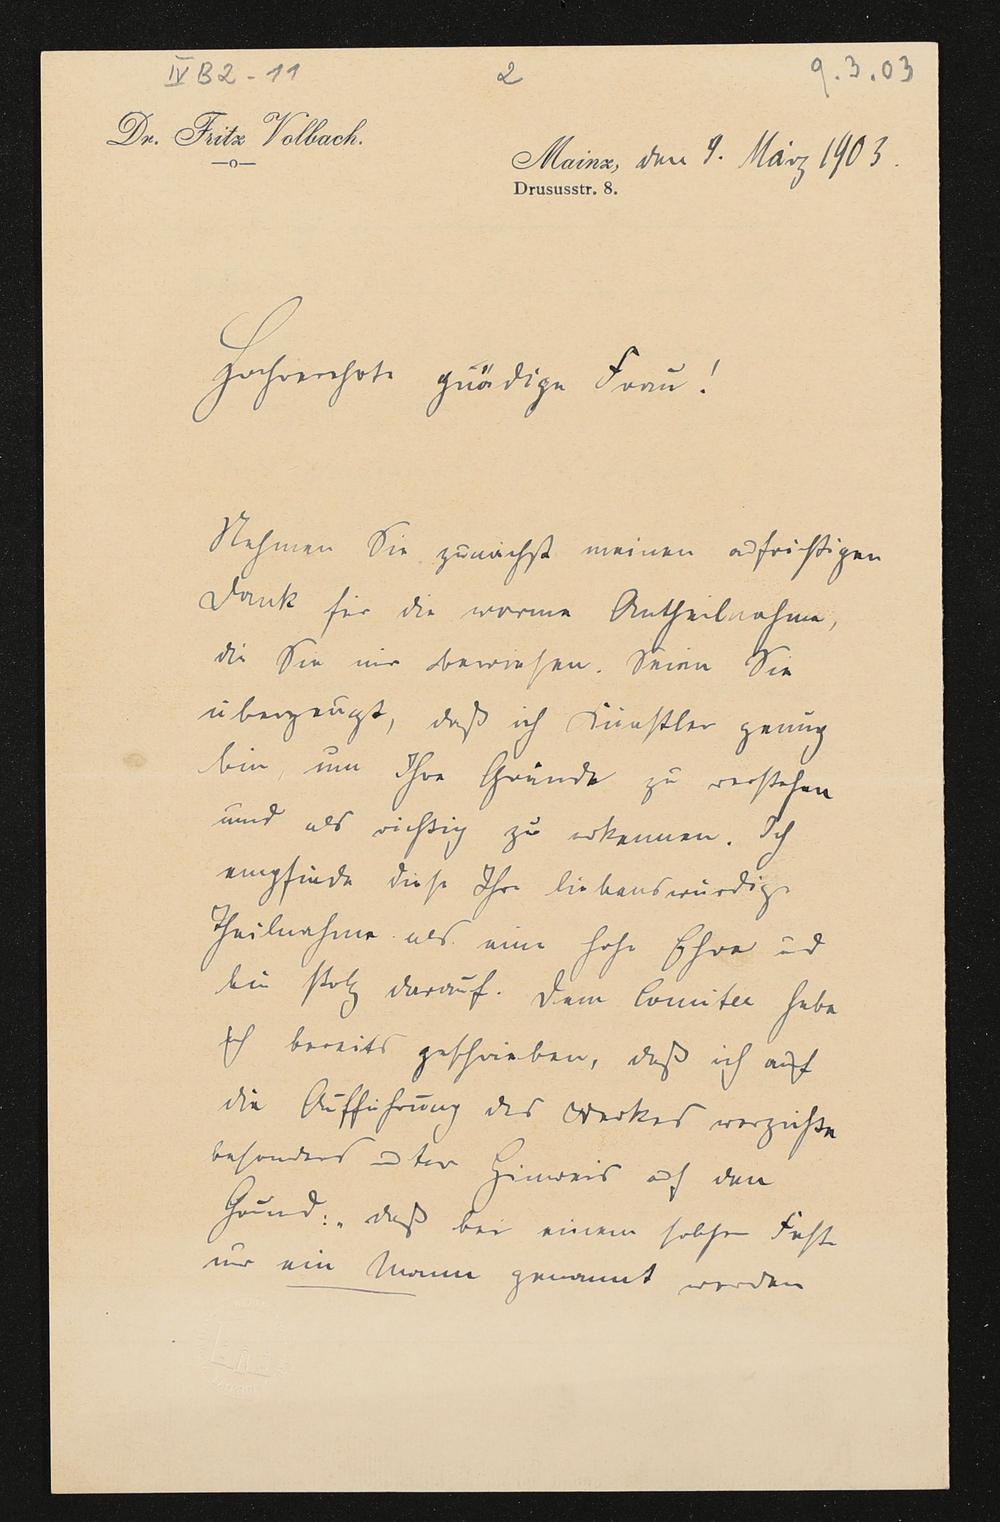 IV B2 - 11
2
9.3.03
Dr. Fritz Volbach.
Mainz, den 9. März 1903.
Drususstr. 8.
Hochverehrte gnädige Frau!
Nehmen Sie zunächst meinen aufrichtigen
Dank für die warme Antheilnahme,
die Sie mir bewiesen. Seien Sie
überzeugt, daß ich Künstler genug
bin, um Ihre Gründe zu verstehen
und als richtig zu erkennen. Ich
empfinde diese Ihre liebenswürdige
Theilnahme als eine hohe Ehre und
bin stolz darauf. Dem Comitee habe
ich bereits geschrieben, daß ich auf
die Aufführung des Werkes verzichte
besonders unter Hinweis auf den
Grund: „daß bei einem solchen Feste
nur ein Mann genannt werden